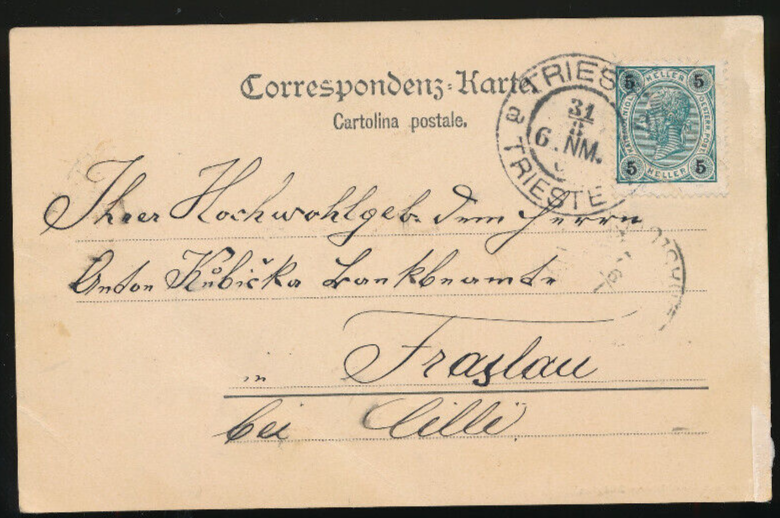 Correspondenz-Karte.
Cartolina postale.
TRIESTE TRIESTE
31
8
6. NM.
5 HELLER 5
5 HELLER 5
Ihrer Hochwohlgeb. dem Herrn
Anton Kubička Bankbeamte
in Fraslau
bei Cilli